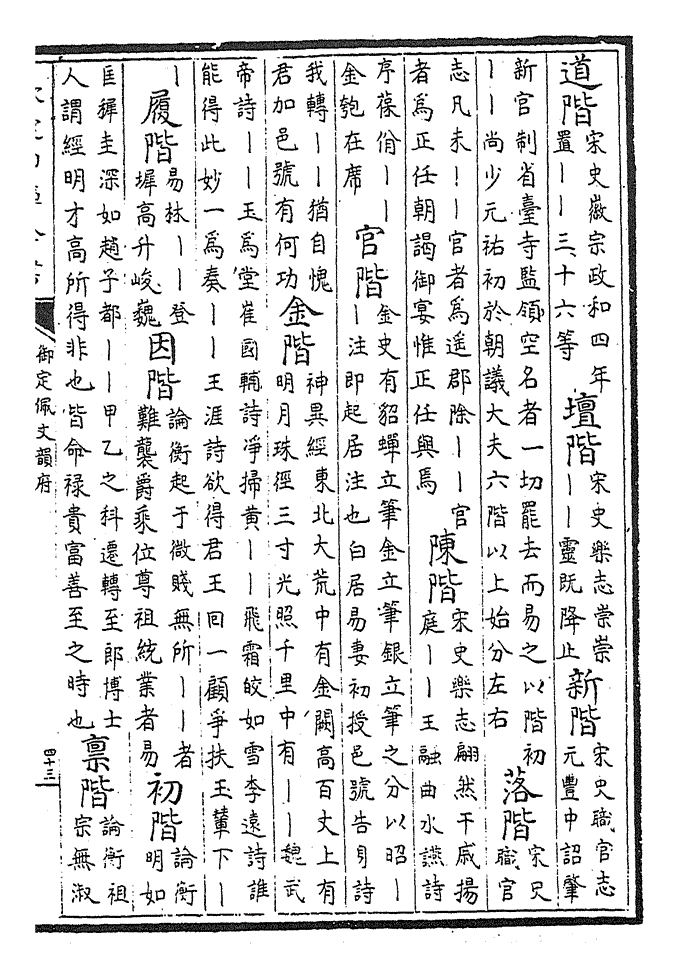 道階宋史徽宗政和四年置｜｜三十六等 壇階宋史樂志崇崇｜｜靈既降止 新階宋史職官志元豐中詔肇
新官制省臺寺監領空名者一切罷去而易之以階初｜｜尚少元祐初於朝議大夫六階以上始分左右 落階宋史職官
志凡未｜｜官者爲遥郡除｜｜官者爲正任朝謁御宴惟正任與焉 陳階宋史樂志翩然干戚揚庭｜｜王融曲水讌詩
序葆佾｜｜金匏在席 官階金史有貂蟬立筆金立筆銀立筆之分以昭｜｜注即起居注也白居易妻初授邑號告身詩
我轉｜｜猶自愧君加邑號有何功 金階神異經東北大荒中有金闕高百丈上有明月珠徑三寸光照千里中有｜｜魏武
帝詩｜｜玉爲堂崔國輔詩凈掃黄｜｜飛霜皎如雪李遠詩誰能得此妙一爲奏｜｜王涯詩欲得君王回一顧爭扶玉輦下｜
｜ 履階易林｜｜登墀高升峻巍 因階論衡起于微賤無所｜｜者難襲爵乘位尊祖統業者易 初階論衡明如
匡穉圭深如趙子都｜｜甲乙之科遷轉至郎博士人謂經明才高所得非也皆命禄貴富善至之時也 稟階論衡祖宗無淑
御定佩文韻府
四十三